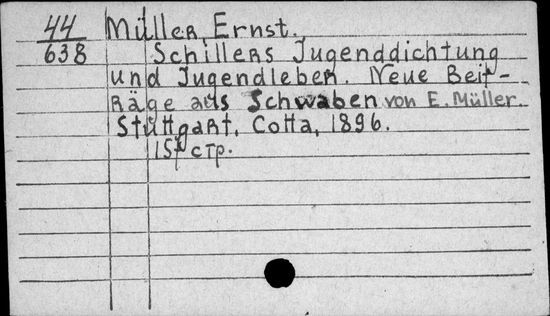 44 Müller, Ernst.
638 Schillers Jugenddichtung
und Jugendleben. Neue Beit-
räge aus Schwaben von E. Müller.
Stuttgart, Cotta, 1896.
стр.